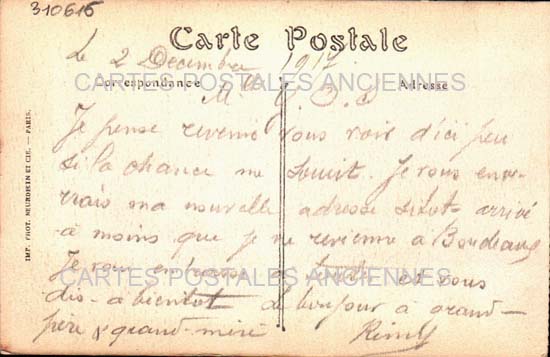 310616
Carte Postale
Le 2 Decembre 1917
CARTES POSTALES ANCIENNES
Correspondance
Adresse
Je pense revenir vous voir d'ici peu
si la chance me sourit. Je vous enver-
rais ma nouvelle adresse sitot arrivé
à moins que je ne revienne à Bordeaux
Je vous embrasse et vous
CARTES POSTALES ANCIENNES
dis-à bientot et bonjour à grand-
père & grand-mère Rémy
IMP. PHOT. NEURDEIN ET CIE. — PARIS.